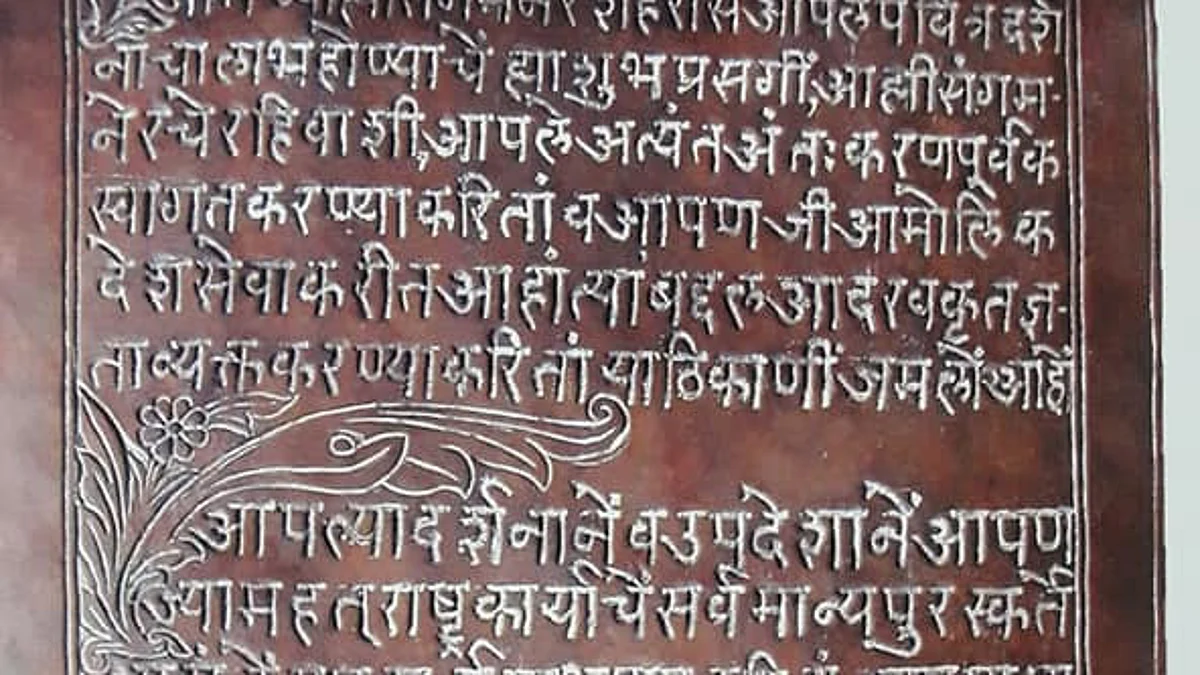 शहरास आपले पवित्र दर्श
नाचा लाभ होण्याचे ह्या शुभ प्रसंगीं, आह्मी संगम-
नेरचे रहिवाशी, आपले अत्यंत अंतःकरणपूर्वक
स्वागत करण्याकरितां व आपण जी आमोलिक
देशसेवा करीत आहां त्याबद्दल आदर व कृतज्ञ-
ता व्यक्त करण्याकरितां या ठिकाणीं जमलों आहों
आपल्या दर्शनानें व उपदेशानें आपण
ज्या महत् राष्ट्रकार्याचें सर्वमान्य पुरस्कर्ते